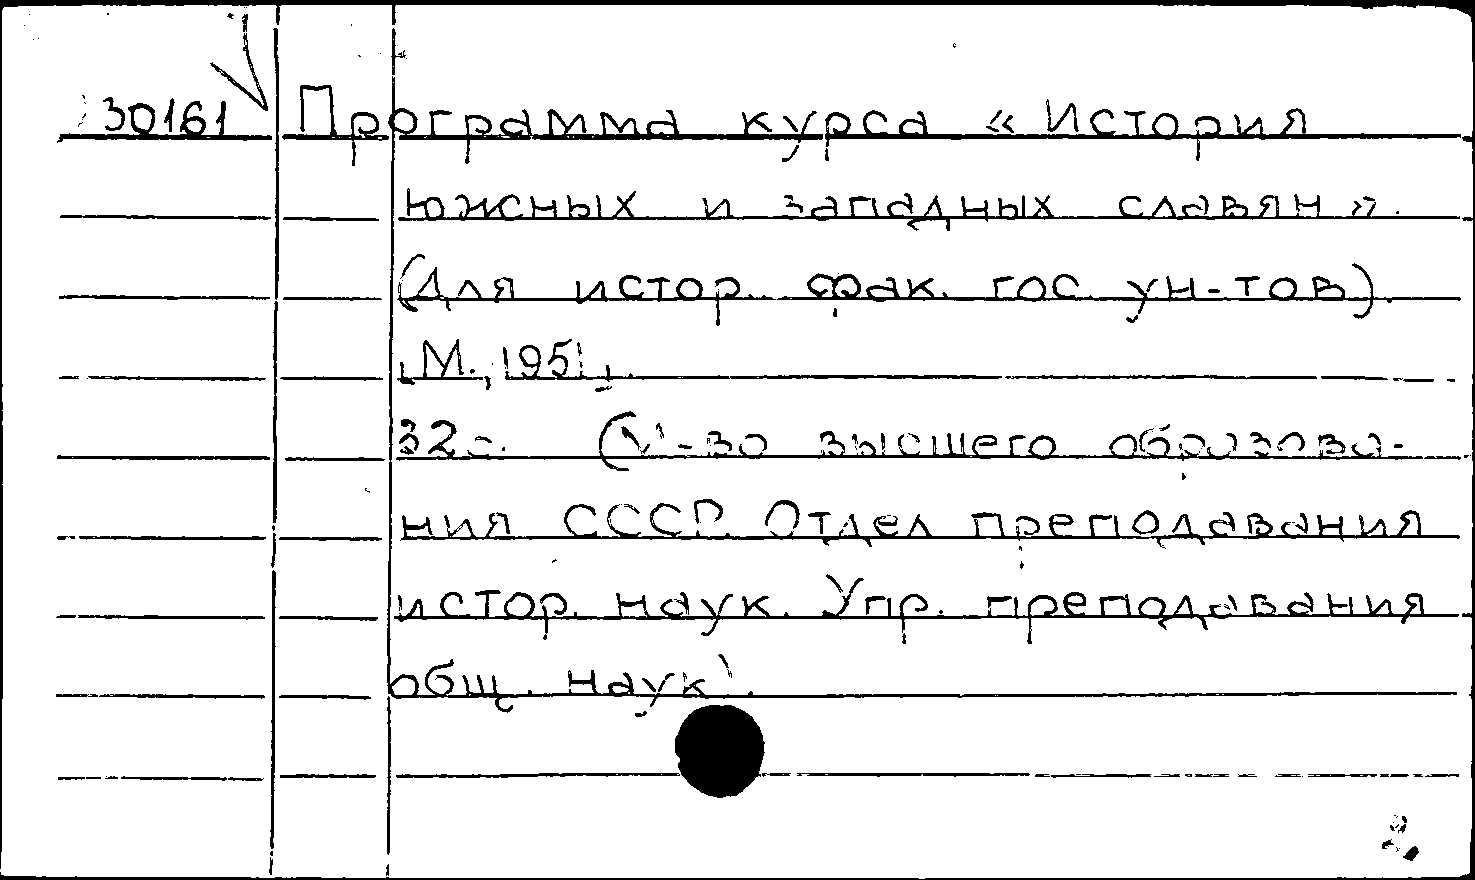 30161 Программа курса «История
южных и западных славян».
(Для истор. фак. гос. ун-тов).
[М., 1951].
32с. (М-во высшего образова-
ния СССР. Отдел преподавания
истор. наук. Упр. преподавания
общ. наук).